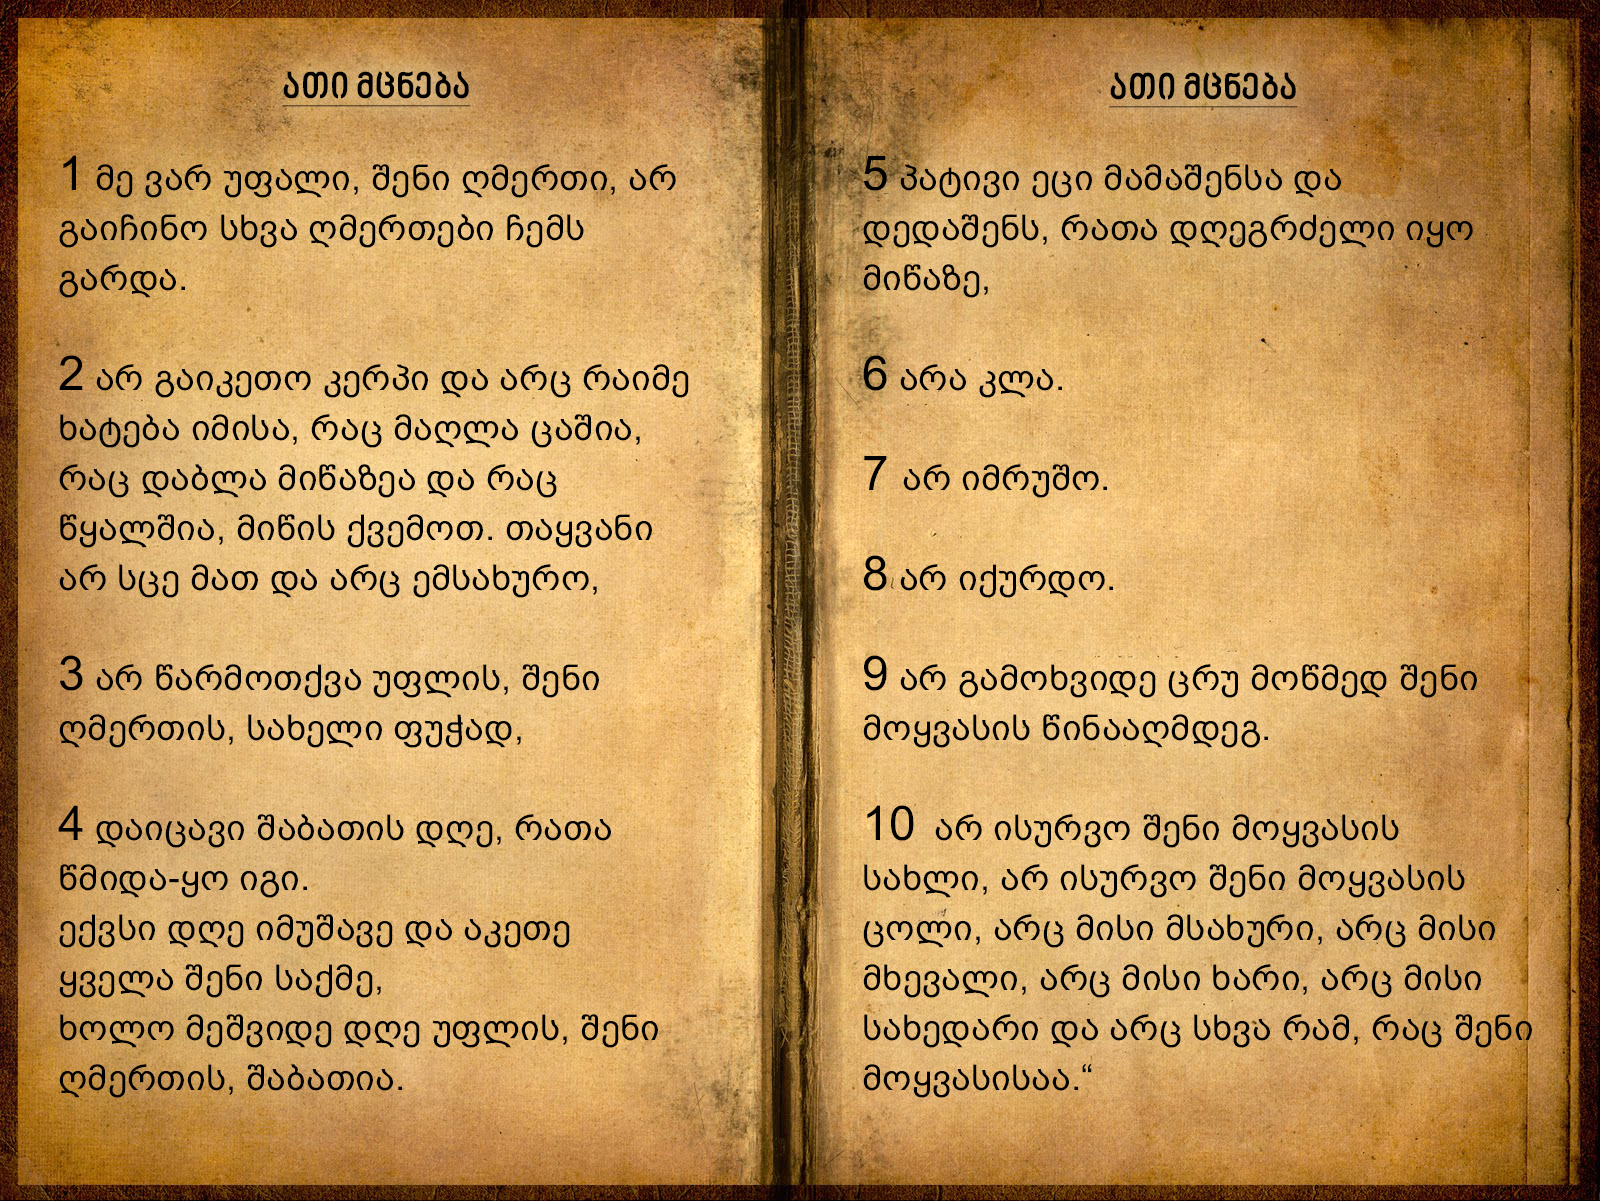 ათი მცნება
1 მე ვარ უფალი, შენი ღმერთი, არ
გაიჩინო სხვა ღმერთები ჩემს
გარდა.
2 არ გაიკეთო კერპი და არც რაიმე
ხატება იმისა, რაც მაღლა ცაშია,
რაც დაბლა მიწაზეა და რაც
წყალშია, მიწის ქვემოთ. თაყვანი
არ სცე მათ და არც ემსახურო,
3 არ წარმოთქვა უფლის, შენი
ღმერთის, სახელი ფუჭად,
4 დაიცავი შაბათის დღე, რათა
წმიდა-ყო იგი.
ექვსი დღე იმუშავე და აკეთე
ყველა შენი საქმე,
ხოლო მეშვიდე დღე უფლის, შენი
ღმერთის, შაბათია.
ათი მცნება
5 პატივი ეცი მამაშენსა და
დედაშენს, რათა დღეგრძელი იყო
მიწაზე,
6 არა კლა.
7 არ იმრუშო.
8 არ იქურდო.
9 არ გამოხვიდე ცრუ მოწმედ შენი
მოყვასის წინააღმდეგ.
10 არ ისურვო შენი მოყვასის
სახლი, არ ისურვო შენი მოყვასის
ცოლი, არც მისი მსახური, არც მისი
მხევალი, არც მისი ხარი, არც მისი
სახედარი და არც სხვა რამ, რაც შენი
მოყვასისაა.“